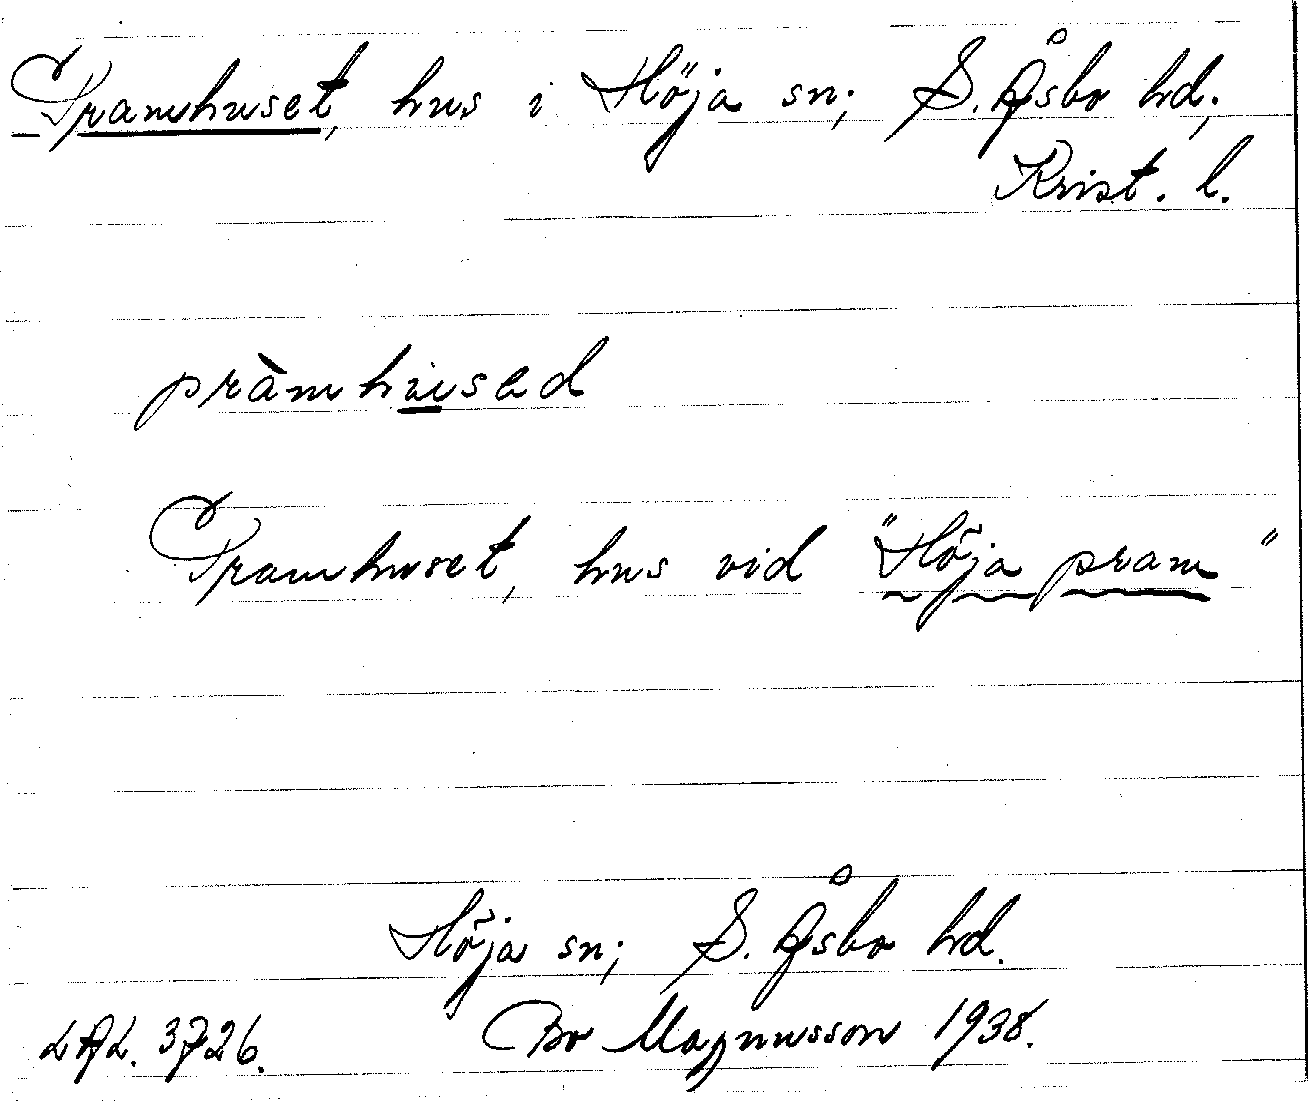 Pramhuset, hus i Höja sn; S. Åsbo hd;
Krist. l.
pràmhu̲sed
Pramhuset, hus vid "Höja pram"
Höja sn; S. Åsbo hd.
LAL. 3726. Bo Magnusson 1938.